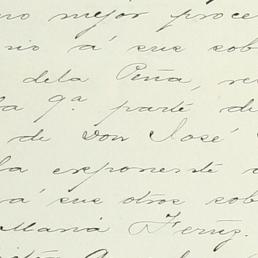 no mejor proce
rio á sus sob
dela Peña, re
la 9ª parte de
de don José
la exponente
á sus otros sob
Maria Ferúz.